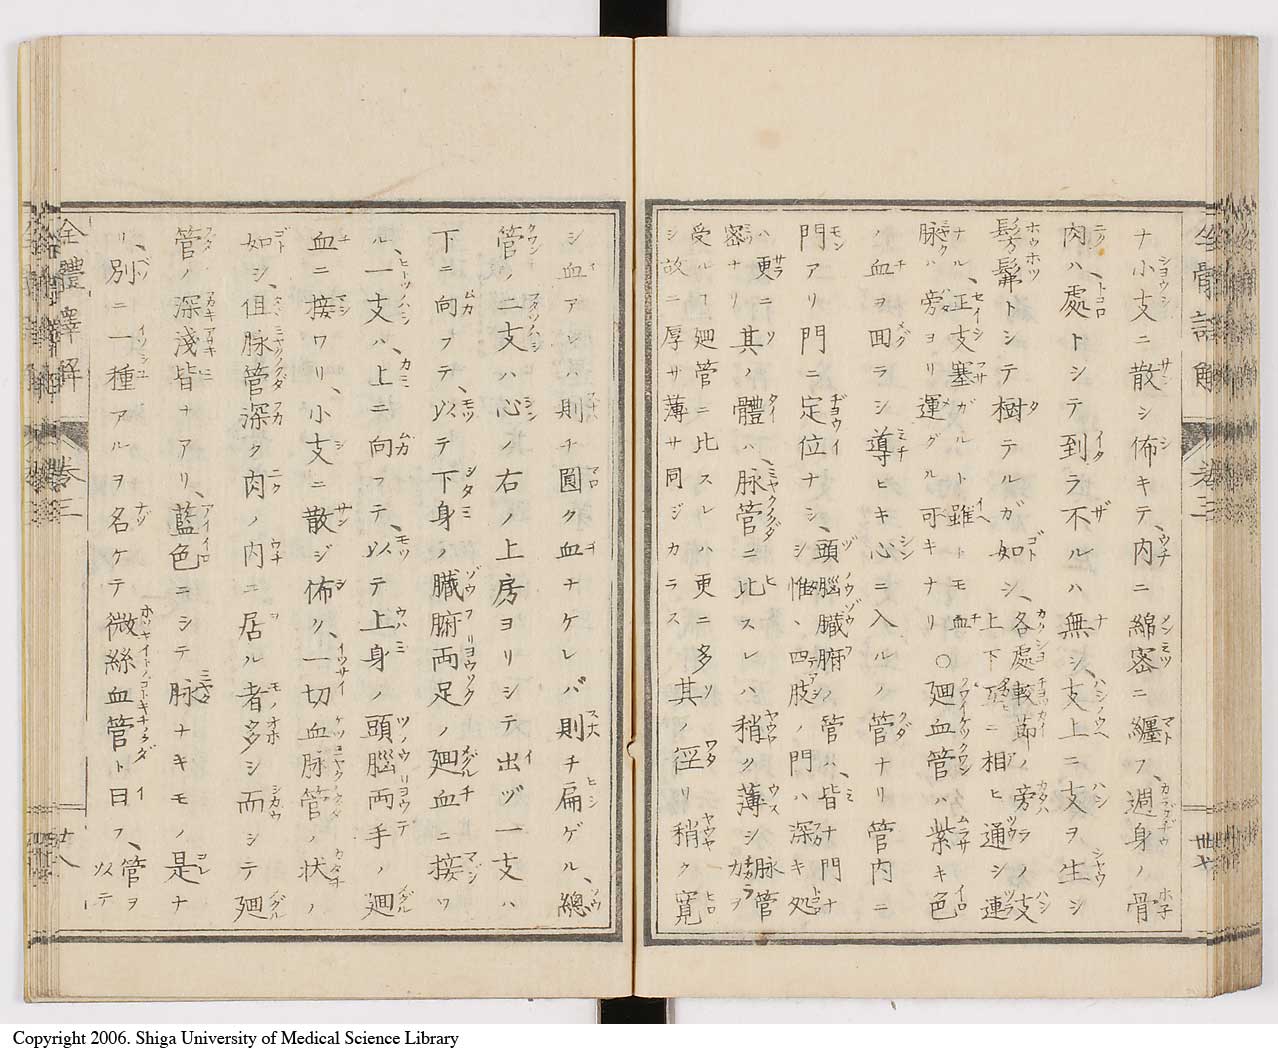 ナ小支ニ散シ佈キテ、内ニ綿密ニ纏フ、週身ノ骨
肉ハ處トシテ到ラ不ルハ無シ、支上ニ支ヲ生シ
髣髴トシテ樹テルガ如シ、各處骹節ノ旁ラノ支
上下互ニ相ヒ通シ連
ナル、正支塞ガルト雖トモ血
脉ハ旁ヨリ運グル可キナリ〇廻血管ハ紫キ色
ノ血ヲ囬ラシ導ヒキ心ニ入ルノ管ナリ管内ニ
門アリ門ニ定位ナシ、頭腦臓腑ノ管ハ、皆ナ門ナ
シ惟、四肢ノ門ハ深キ処
ハ更ニ
密ナリ
其ノ體ハ、脉管ニ比スレハ稍々薄シ
脉管
力ヲ
受ルヿ廻管ニ比スレハ更ニ多シ
故ニ厚サ薄サ同ジカラス
其ノ徑リ稍ク寛
シ血アレハ則チ圓ク血ナケレバ則チ扁ゲル、總
管ノ二支ハ心ノ右ノ上房ヨリシテ出ヅ一支ハ
下ニ向フテ、以テ下身ノ臓腑両足ノ廻血ニ接ワ
ル、一支ハ、上ニ向フテ、以テ上身ノ頭腦両手ノ廻
血ニ接ワリ、小支ニ散ジ佈ク、一切血脉管ノ状ノ
如シ、但脉管深ク肉ノ内ニ居ル者多シ而シテ廻
管ノ深淺皆ナアリ、藍色ニシテ脉ナキモノ是ナ
リ、別ニ一種アルヲ名ケテ微絲血管ト曰フ、管ヲ
以テ
全體譯解
卷三
廿八
Copyright 2006. Shiga University of Medical Science Library